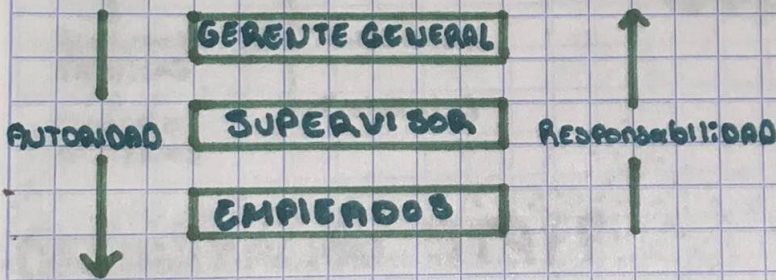 GERENTE GENERAL
AUTORIDAD
SUPERVISOR
RESPONSABILIDAD
EMPLEADOS